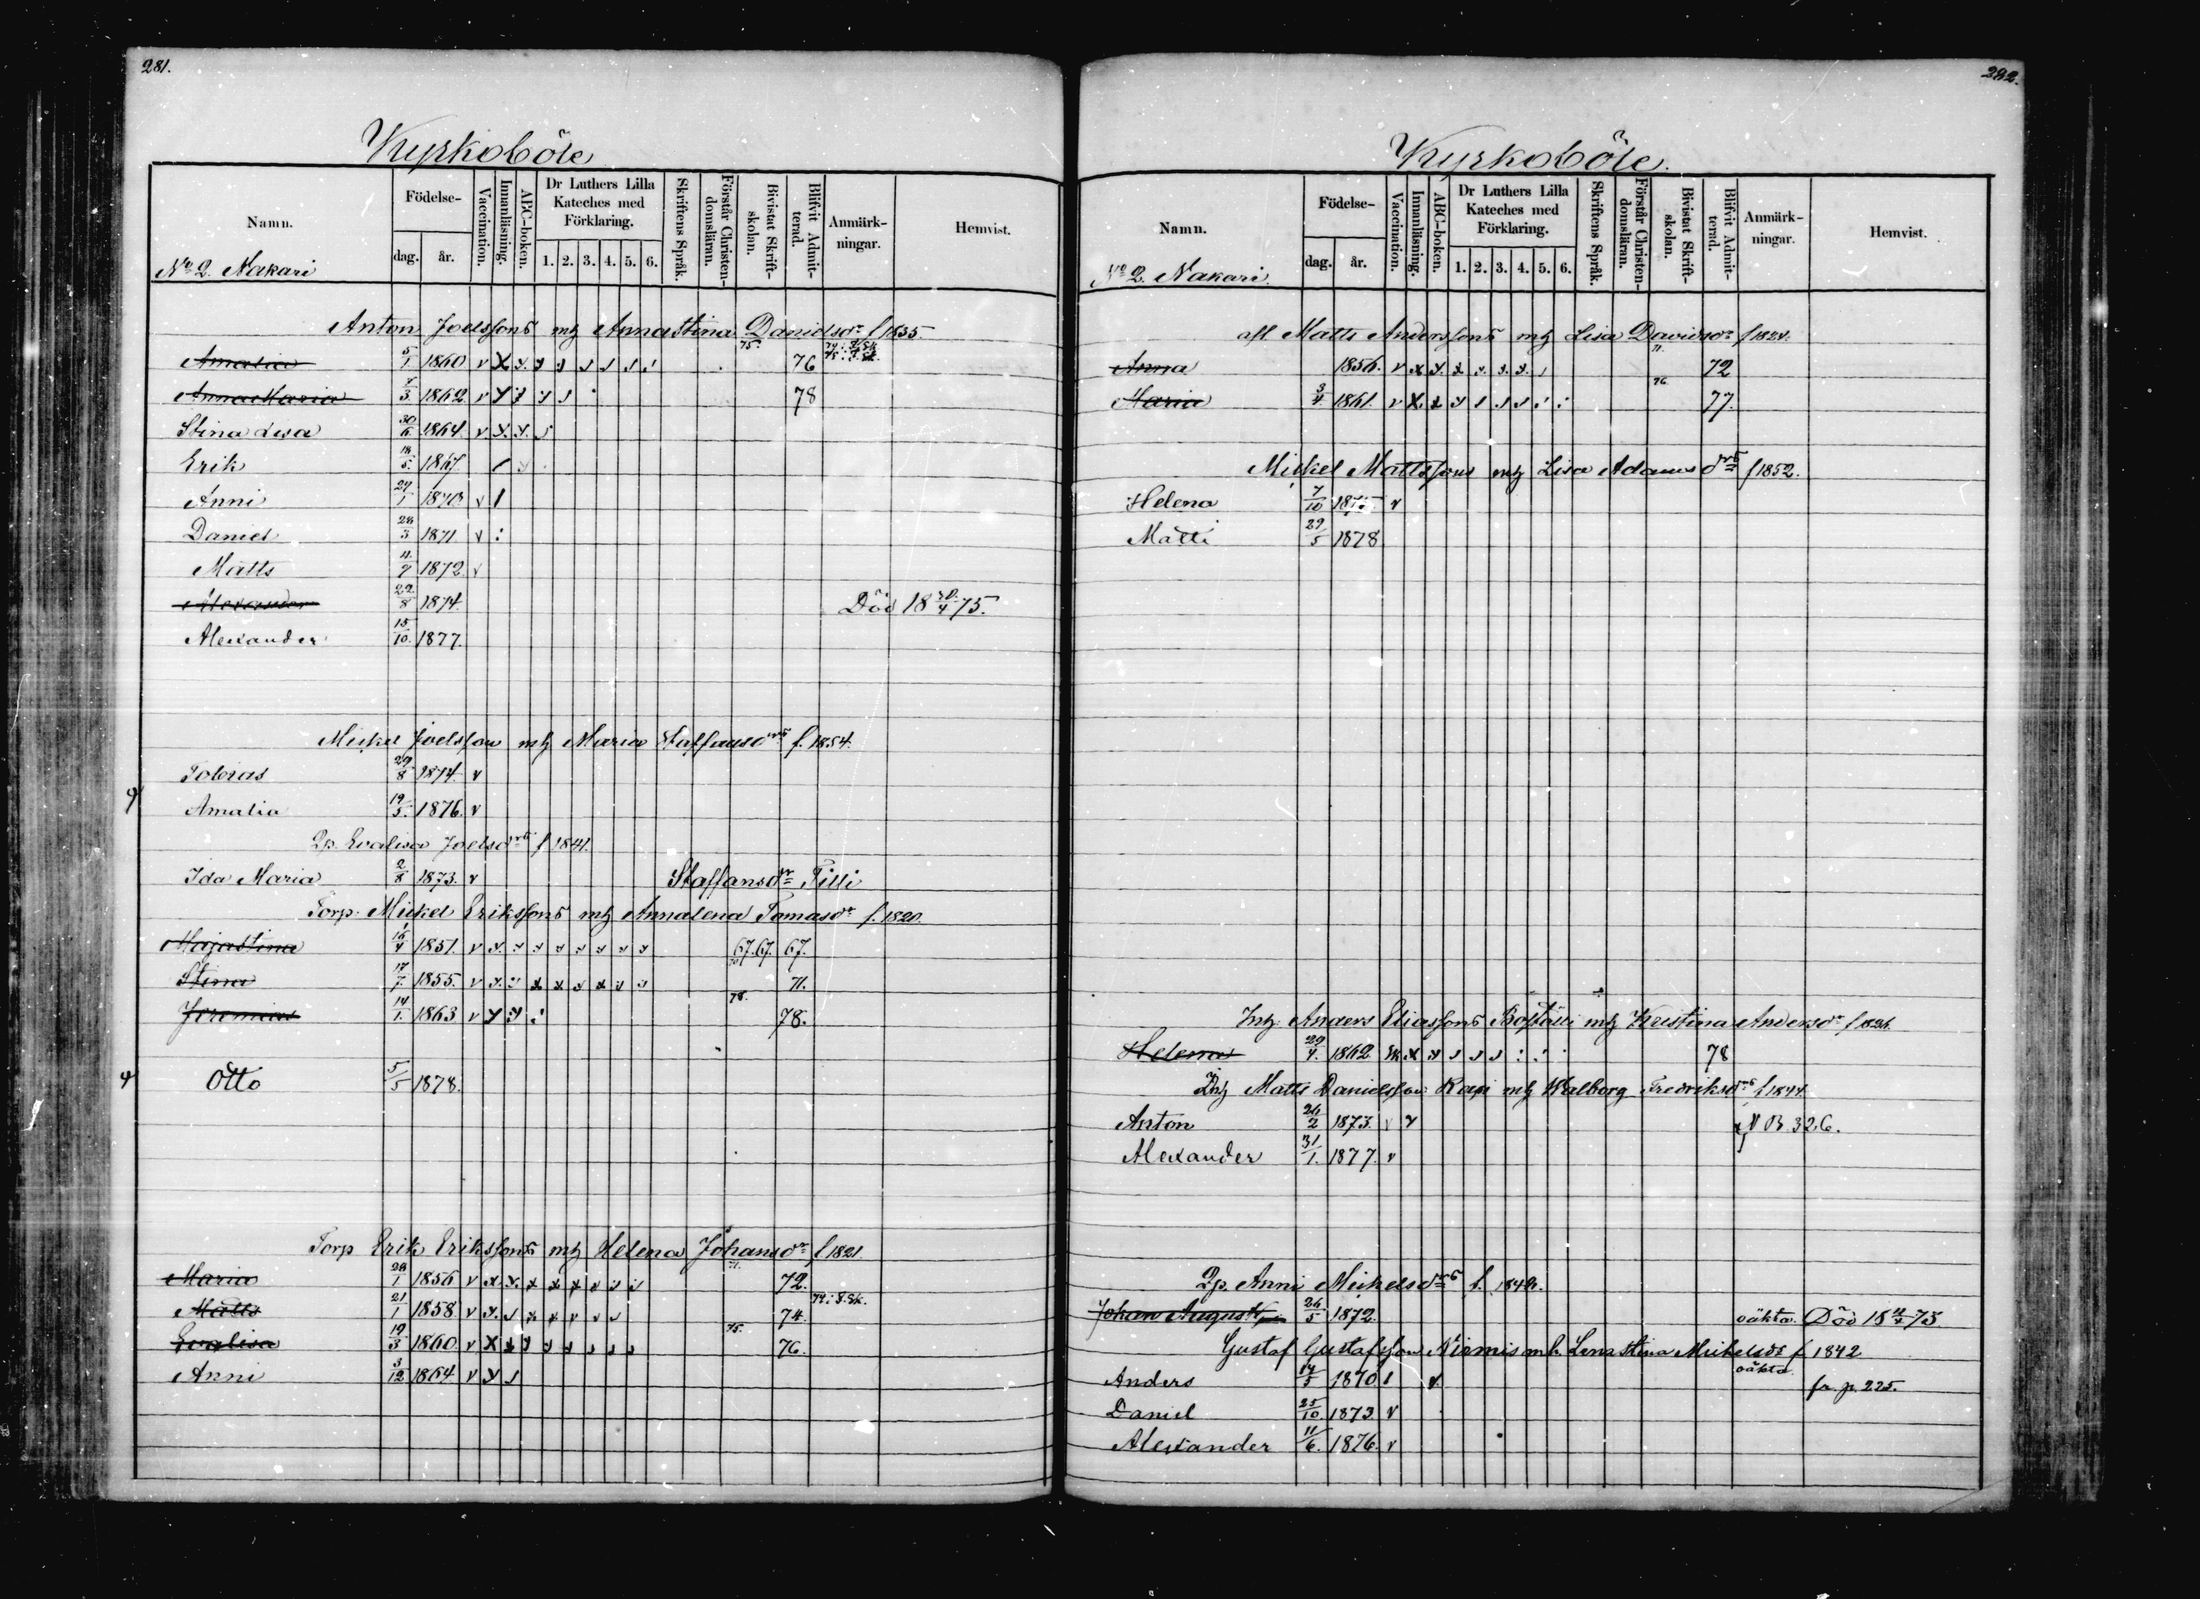 281.
Kyrkoböle
Namn. Födelse- dag. år. Vaccination. Innanläsning. ABC-boken. Dr Luthers Lilla Kateches med Förklaring. 1. 2. 3. 4. 5. 6. Skriftens Språk. Förstår Christendomsläran. Bivistat Skriftskolan. Blifvit Admitterad. Anmärkningar. Hemvist.
No 2. Nakari
Anton Joelssons mg Annastina Danielsdr f 1835.
Amalia 5/1 1860 v 75. 76
Anna Maria 3 1862 v 78
Stina Lisa 30/6 1864. v
Erik 18/5. 1867.
Anni 27/1 1870 v
Daniel 28/3 1871 v
Matts 1872. v
Alexander 22/8 1874. Död 18 4 75.
Alexander 15/10. 1877.
Mickel Joelsson mg Maria Staffansdrs f. 1854.
Tobias 29/8 1874. v
Amalia 19/5. 1876. v
Qp. Evalisa Joelsdrs f 1841.
Ida Maria 2/8 1873. v Staffansdr Filli
Torp. Mickel Erikssons mg Annalena Tomasdr f. 1820.
Majastina 16/4 1851. v 67. 67. 67.
Stina 17/7. 1855. v 71.
Jeremias 14/1. 1863 v 78. 78.
Otto 5/5 1878.
Torp Erik Erikssons mg Helena Johansdr f 1821.
Maria 28/1 1856 v 71. 72.
Matts 21/1 1858 v 74.
Evalisa 19/3 1860 v 75. 76.
Anni 3/12 1864 v
282.
Kyrkoböle.
Namn. Födelse- dag. år. Vaccination. Innanläsning. ABC-boken. Dr Luthers Lilla Kateches med Förklaring. 1. 2. 3. 4. 5. 6. Skriftens Språk. Förstår Christendomsläran. Bivistat Skriftskolan. Blifvit Admitterad. Anmärkningar. Hemvist.
No 2. Nakari.
afl. Matts Anderssons mg Lisa Davidsdr f 1824.
Anna 1856. v 71. 72
Maria 3/4 1861. v 76. 77.
Mickel Mattssons mg Lisa Adamsdrs f 1852.
Helena 7/10 1875 v
Matti 29/5 1878
Inh. Anders Eliassons mg Kristina Andersdr
Helena 29/4. 1862 78
Inh Matts Danielsson Kapi mg Walborg Fredriksdrs f. 1844.
Anton 24/2 1873. v v N B. 326.
Alexander 31/1. 1877. v
Qp. Anni Mickelsdrs f. 1848.
Johan August 26/5 1872. oäkta. Död 18 75.
Gustaf Gustafsson Niemis mh. Lenastina Mickelsdr f 1842
Anders 14/3 1870 oäkta fr. p. 225.
Daniel 25/10. 1873. v
Alexander 11/6. 1876. v